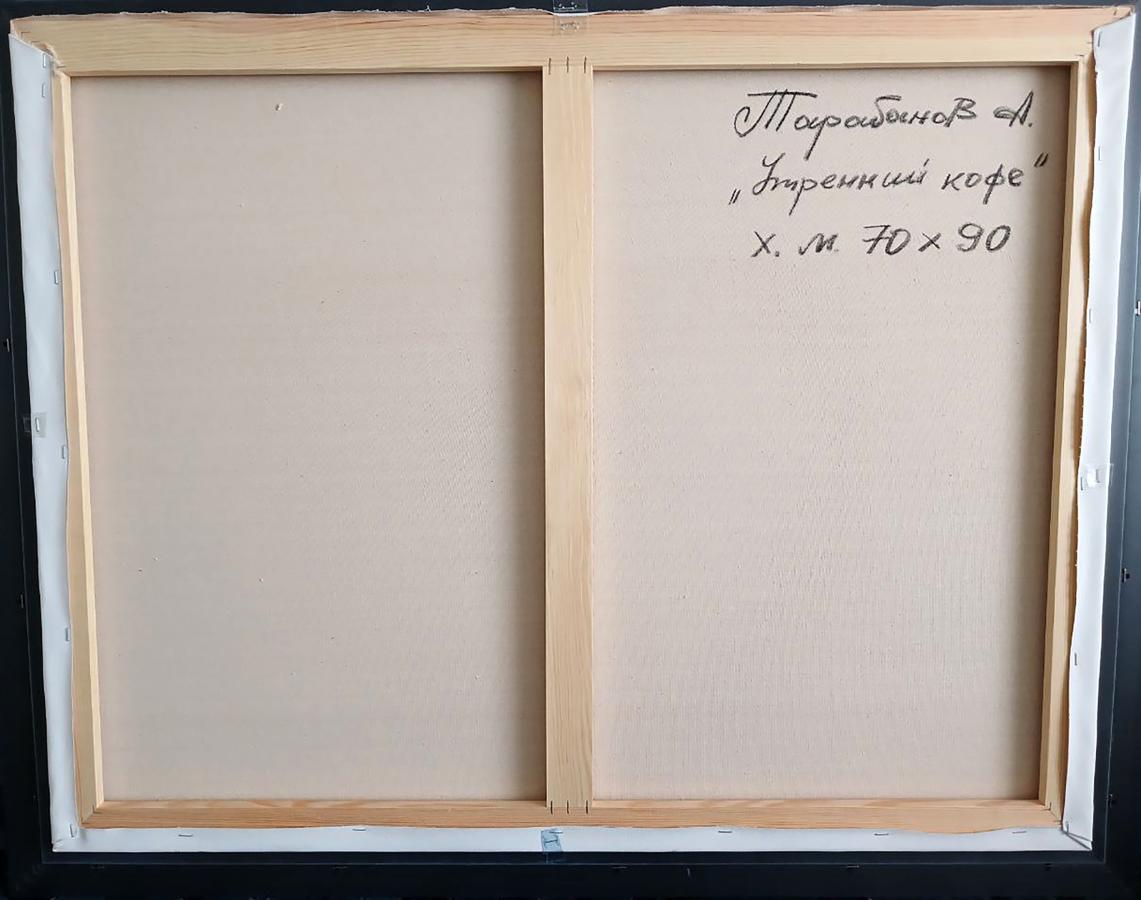 Тарабанов А.
„Утренний кофе"
х. м. 70 х 90